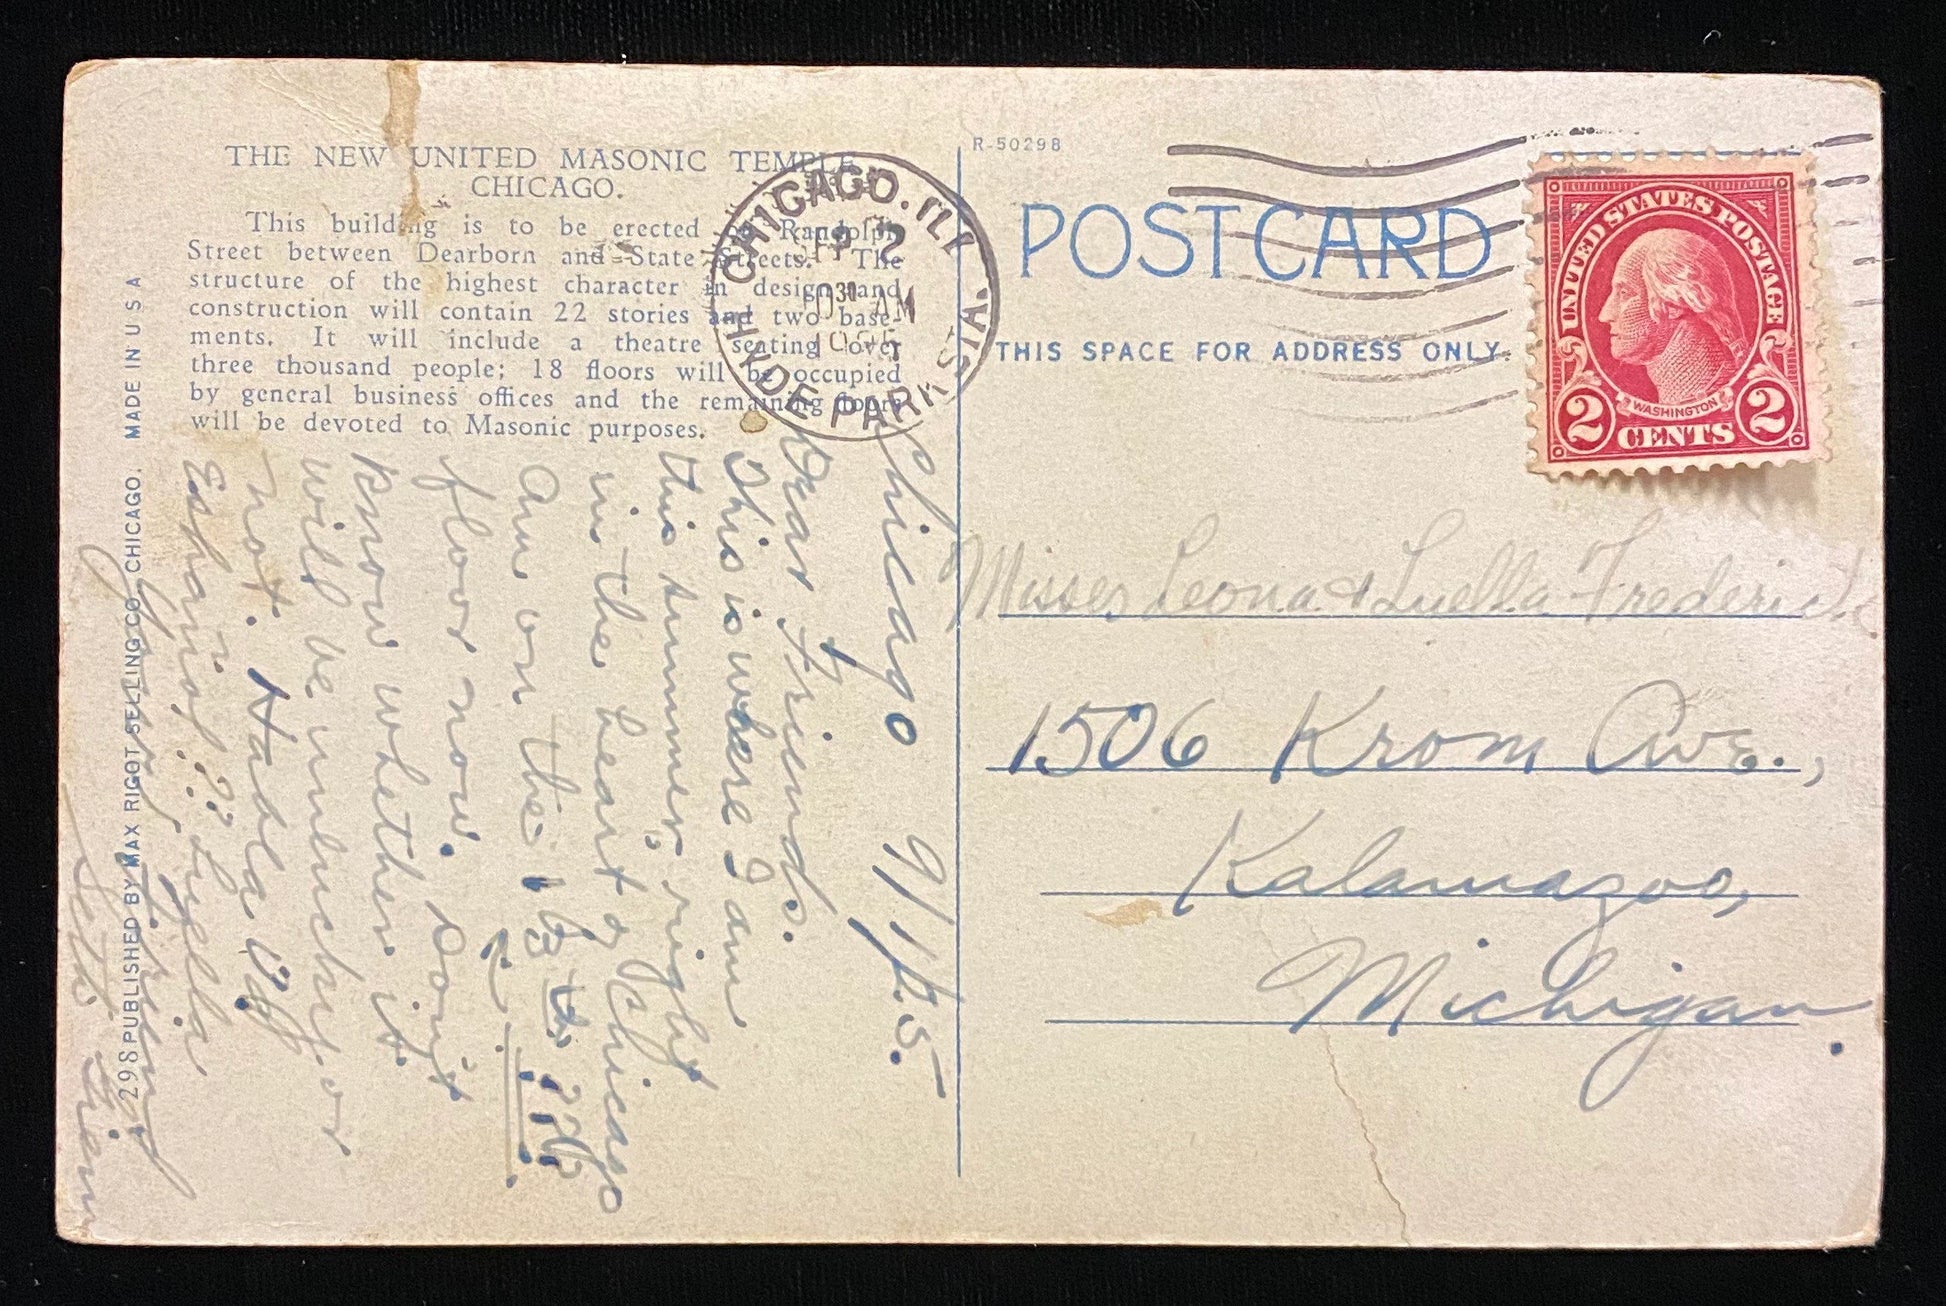 THE NEW UNITED MASONIC TEMPLE
CHICAGO.
This building is to be erected on Randolph
Street between Dearborn and State Streets. The
structure of the highest character in design and
construction will contain 22 stories and two base-
ments. It will include a theatre seating over
three thousand people; 18 floors will be occupied
by general business offices and the remaining floors
will be devoted to Masonic purposes.
CHICAGO. ILL
SEP 2
1030 AM
1925
HYDE PARK STA.
R-50298
POSTCARD
THIS SPACE FOR ADDRESS ONLY.
UNITED STATES POSTAGE
WASHINGTON
2 CENTS 2
Misses Leona & Luella Frederick
1506 Krom Ave.,
Kalamazoo,
Michigan.
Chicago 9/1/25
Dear Friends.
This is where I am
this summer, right
in the heart of Chicago
Am on the 13th
floor now. Don't
know whether it
will be unlucky or
not. Habla Ud
Español?? Luella
Your Friend
298 PUBLISHED BY MAX RIGOT SELLING CO., CHICAGO. MADE IN USA